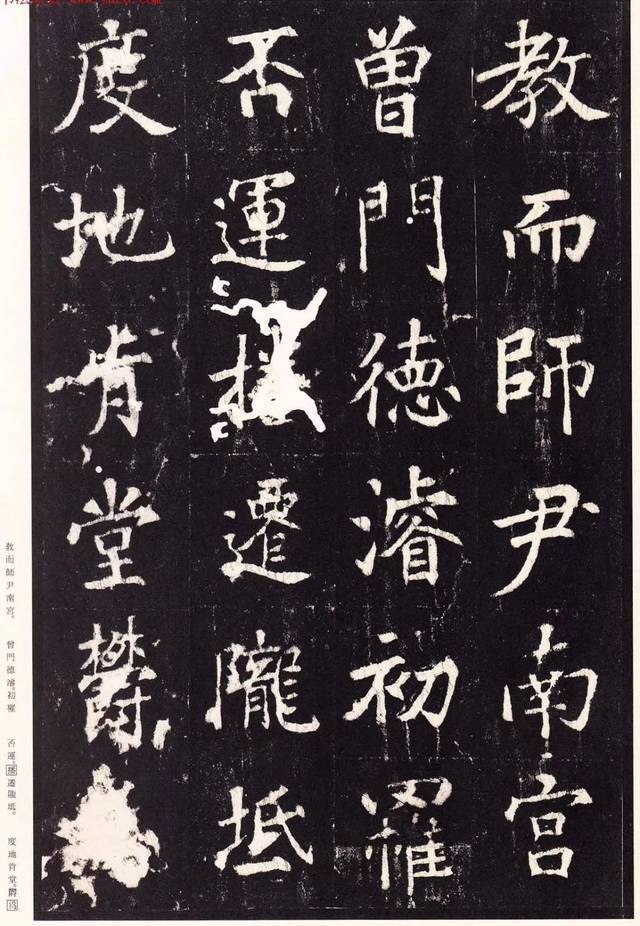 教而師尹南宫
曾門德濬初羅
否運播遷隴坻
度地肯堂欝
教而師尹南宮。　曾門德濬、初罹　否運、播遷隴坻。　度地肯堂、欝